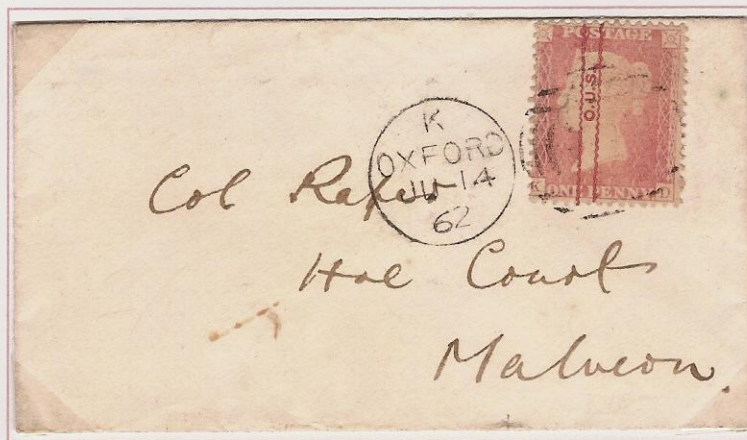 POSTAGE
O.U.S.
K ONE PENNY D
K
OXFORD
JU-14
62
Col Raper
Hoe Court
Malvern.